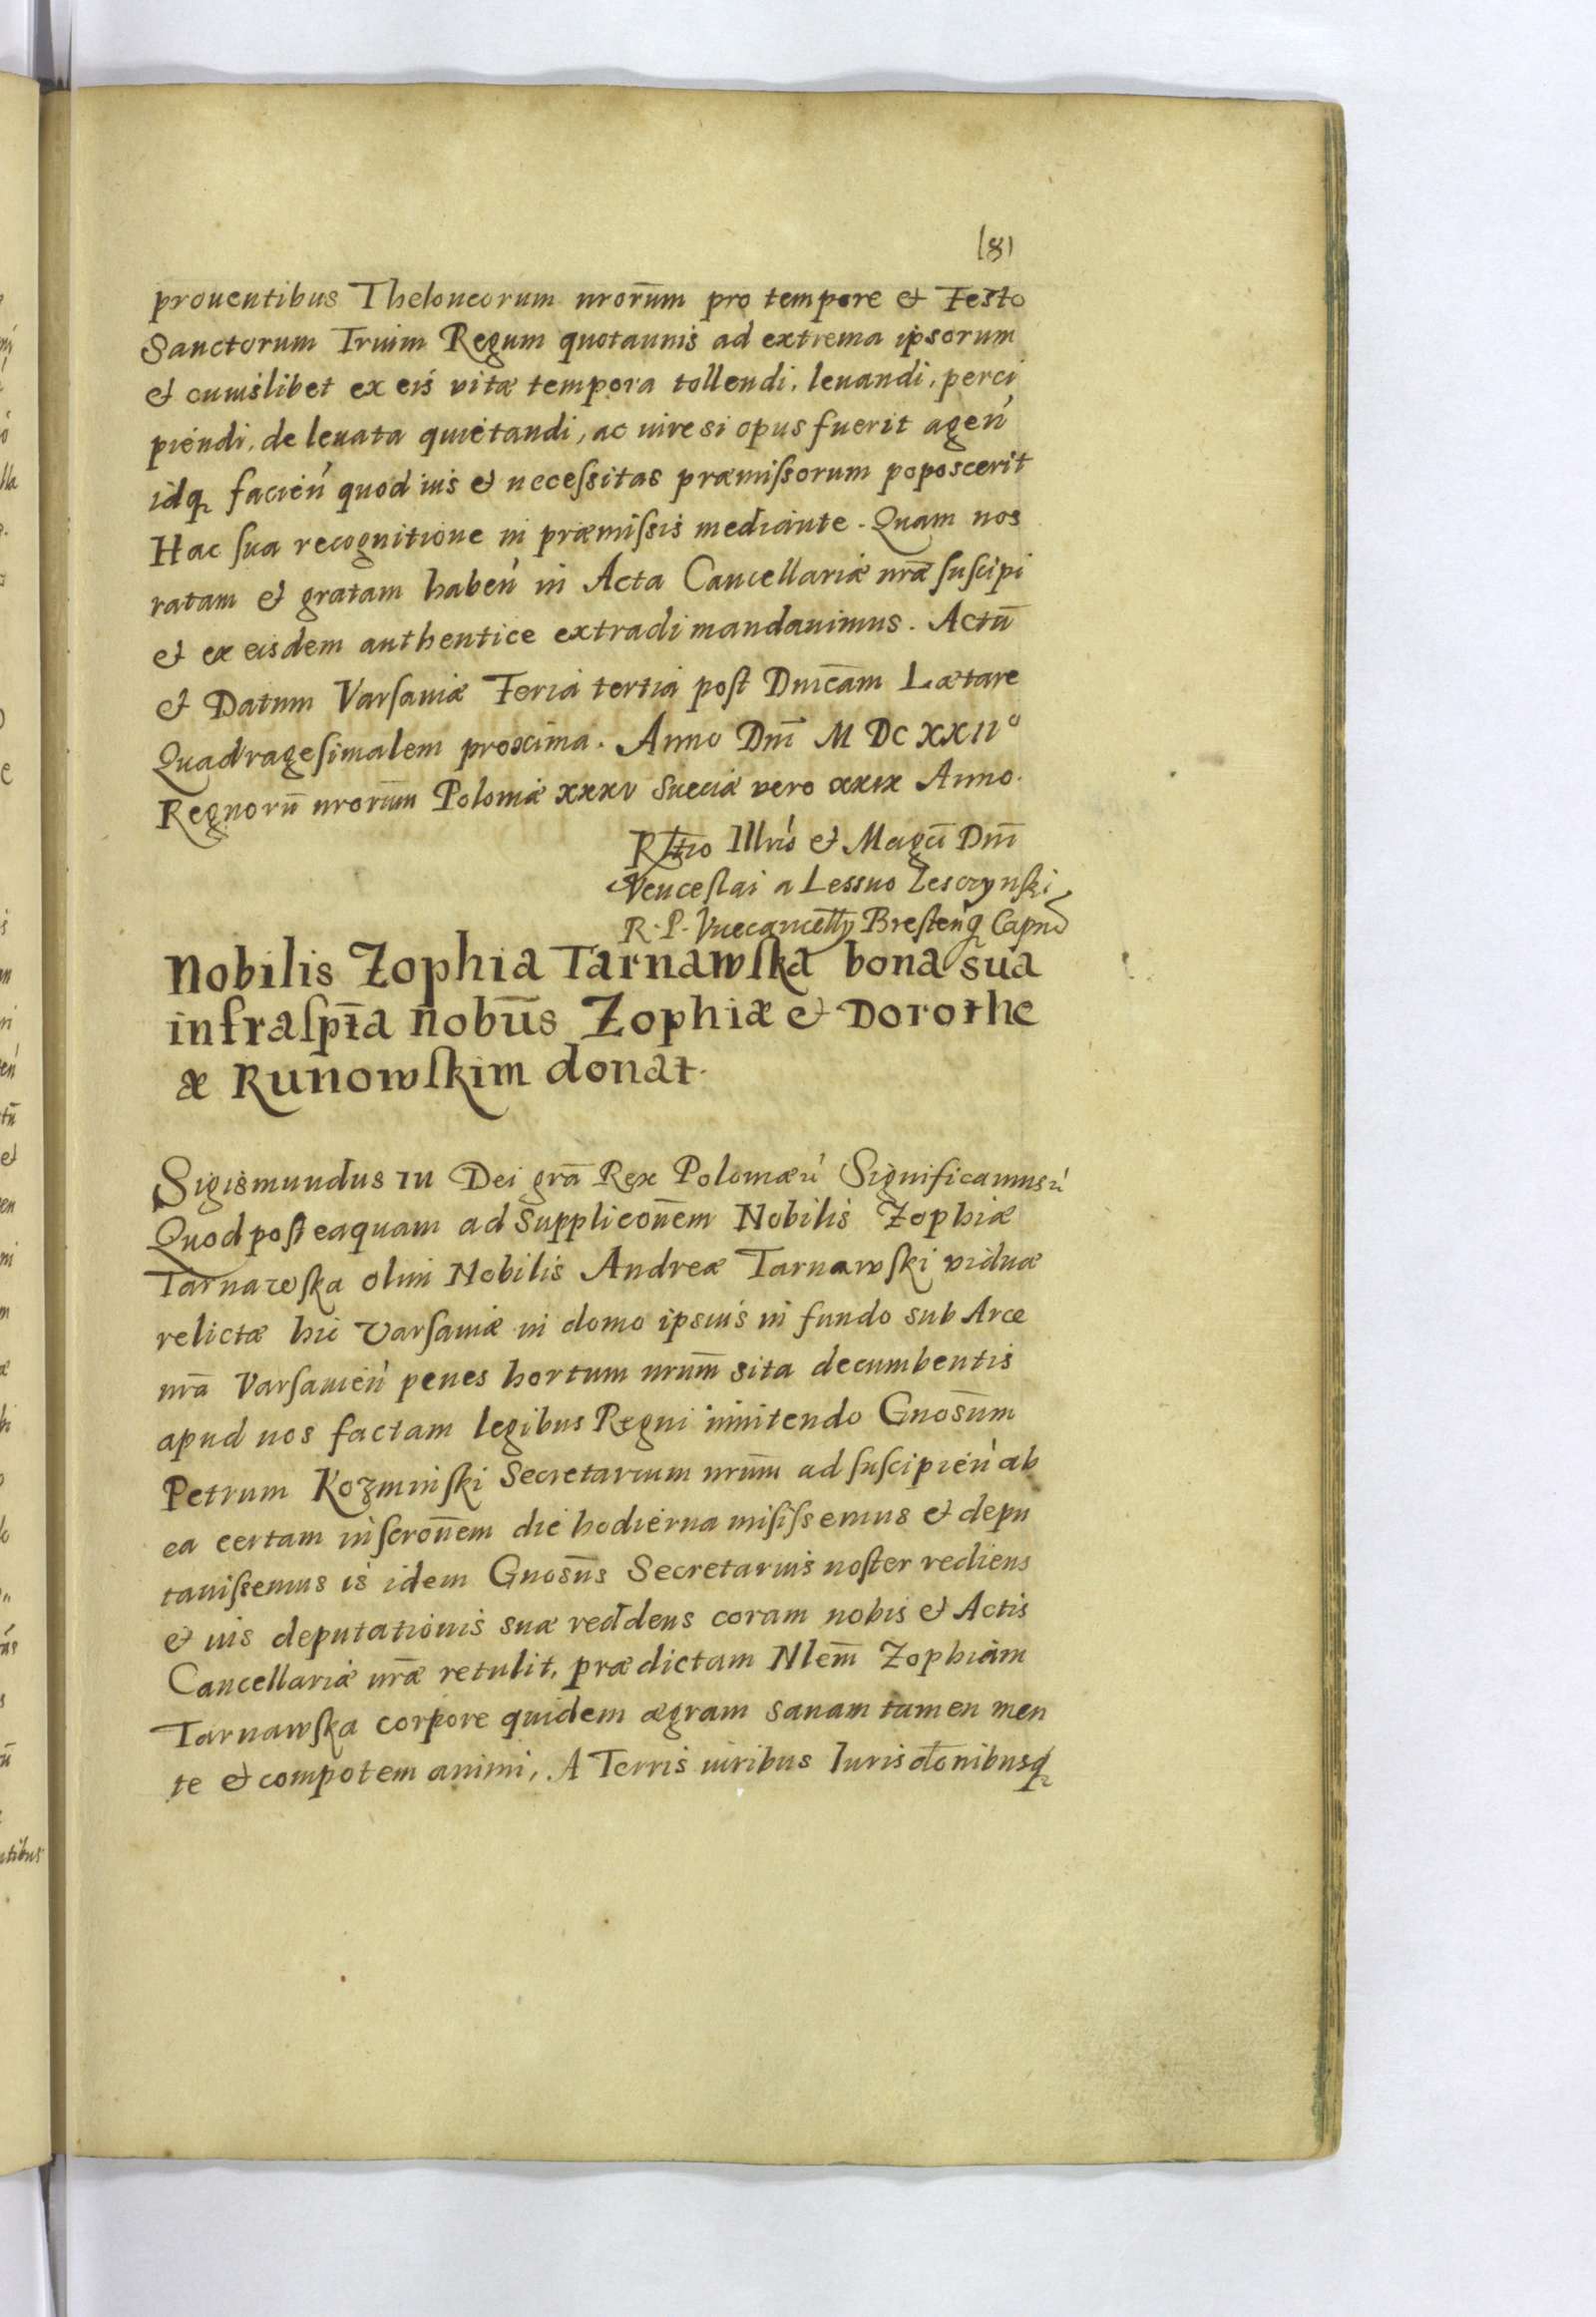 181
prouentibus Theloneorum nrorum̄ pro tempore et Festo
Sanctorum Trium Regum quotannis ad extrema ipsorum
et cuiuslibet ex eis vitæ tempora tollendi, leuandi, perci
piendi, de leuata quietandi, ac iure si opus fuerit ageń
idq facień quod ius et necessitas præmissorum poposcerit
Hac sua recognitione in præmissis mediante. Quam nos
ratam et gratam habeń in Acta Cancellariæ nrǣ suscipi
et ex eisdem authentice extradi mandauimus. Actū
et Datum Varsauiæ Feria tertia post Dnicam̄ Lætare
Quadragesimalem proxima. Anno Dni̅ M DC XXII°
Regnorū nrorum̄ Poloniæ XXXV Sueciæ vero XXIX Anno.
Rltio Illris et Magci Dni̅
Venceslai a Lessno Lesczynski
R. P. Vicecancellÿ Bresteńq Capnei
Nobilis Zophia Tarnawska bona sua
infraspta̅ nobus̄ Zophiæ et Dorothe
æ Runowskim donat.
Sigismundus III Dei gra̅ Rex Poloniæ ń Significamus ń
Quod posteaquam ad Supplicon̄em Nobilis Zophiæ
Tarnawska olim Nobilis Andreæ Tarnawski viduæ
relictæ hic Varsauiæ in domo ipsius in fundo sub Arce
nra̅ Varsauień penes hortum nrum̄ sita decumbentis
apud nos factam legibus Regni innitendo Gnosum̄
Petrum Kozminski Secretarium nrum̄ ad suscipień ab
ea certam inscron̄em die hodierna misissemus et depu
tauissemus is idem Gnosus̄ Secretarius noster rediens
et uis deputationis suæ reddens coram nobis et Actis
Cancellariæ nrǣ retulit, prædictam Nlem̄ Zophiam
Tarnawska corpore quidem ægram sanam tamen men
te et compotem animi, A Terris iuribus Iurisdtonibusq